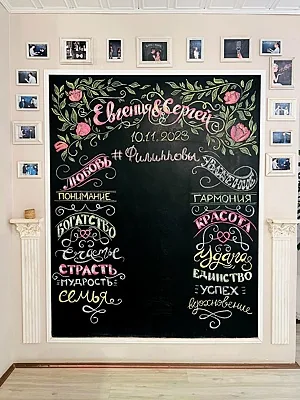 Евгения & Сергей
10.11.2023
#Филипповы
ЛЮБОВЬ
ПОНИМАНИЕ
БОГАТСТВО
Счастье
СТРАСТЬ
МУДРОСТЬ
семья
ГАРМОНИЯ
КРАСОТА
Удача
ЕДИНСТВО
УСПЕХ
вдохновение